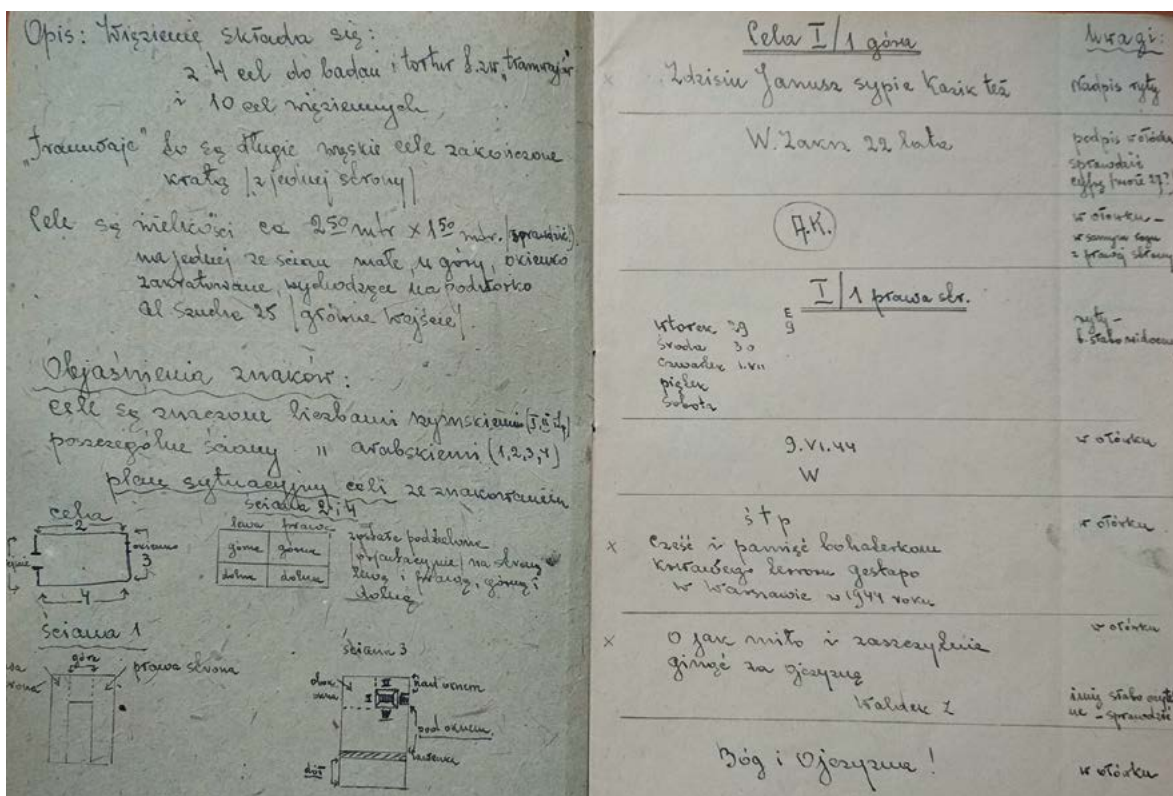 Opis: Więzienie składa się:
z 4 cel do badań i tortur t.zw. „tramwajów"
i 10 cel więziennych
„Tramwaje" to są długie wąskie cele zakończone
kratą /z jednej strony/
Cele są wielkości ca 2⁵⁰ mtr × 1⁵⁰ mtr. /sprawdzić/
na jednej ze ścian małe, u góry, okienko
zakratowane, wychodzące na podwórko
al Szucha 25 /główne wejście/.
Objaśnienia znaków:
cele są znaczone liczbami rzymskiemi (I, II i t.d)
poszczególne ściany " arabskiemi (1,2,3,4)
plan sytuacyjny celi ze znakowaniem
ściana 2 i 4
cela
2
okienko
3
4
lewa prawa
górna górna
dolna dolna
została podzielona
orjentacyjnie na stronę
lewą i prawą, górną i
dolną
ściana 1
góra
prawa strona
ściana 3
obok
okna
nad oknem
II
I
III
IV
pod oknem
ławka
dół
Cela I/1 góra
Uwagi:
x Zdzisiu Janusz sypie Kazik też
Nadpis ryty
W. Zakrz 22 lata
podpis w ołówku
sprawdzić
cyfrę /może 27?
A.K.
w ołówku -
w samym rogu
z prawej strony
I/1 prawa str.
wtorek 29
E
9
środa 30
czwartek 1.VII
piątek
sobota
ryty -
b. słabo widoczn
9.VI.44
W
w ołówku
ś † p
w ołówku
x Cześć i pamięć bohaterkom
krwawego terroru gestapo
w Warszawie w 1944 roku
w ołówku
x O jak miło i zaszczytnie
ginąć za ojczyznę
Waldek Z
imię słabo czytel
ne - sprawdzić
Bóg i Ojczyzna!
w ołówku